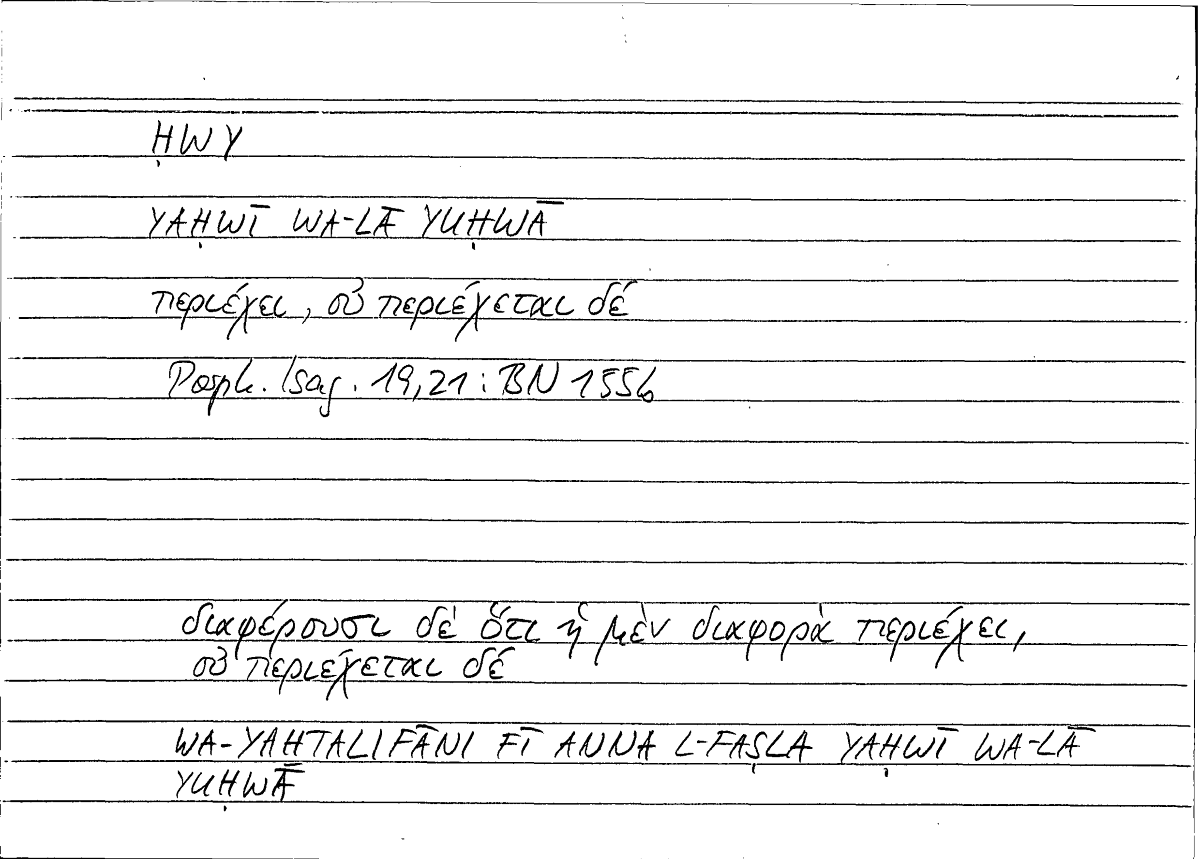 ḤWY
YAḤWĪ WA-LĀ YUḤWĀ
περιέχει, οὐ περιέχεται δέ
Porph. Isag. 19,21: BN 155b
διαφέρουσι δὲ ὅτι ἡ μὲν διαφορὰ περιέχει,
οὐ περιέχεται δέ
WA-YAHTALIFĀNI FĪ ANNA L-FAṢLA YAḤWĪ WA-LĀ
YUḤWĀ